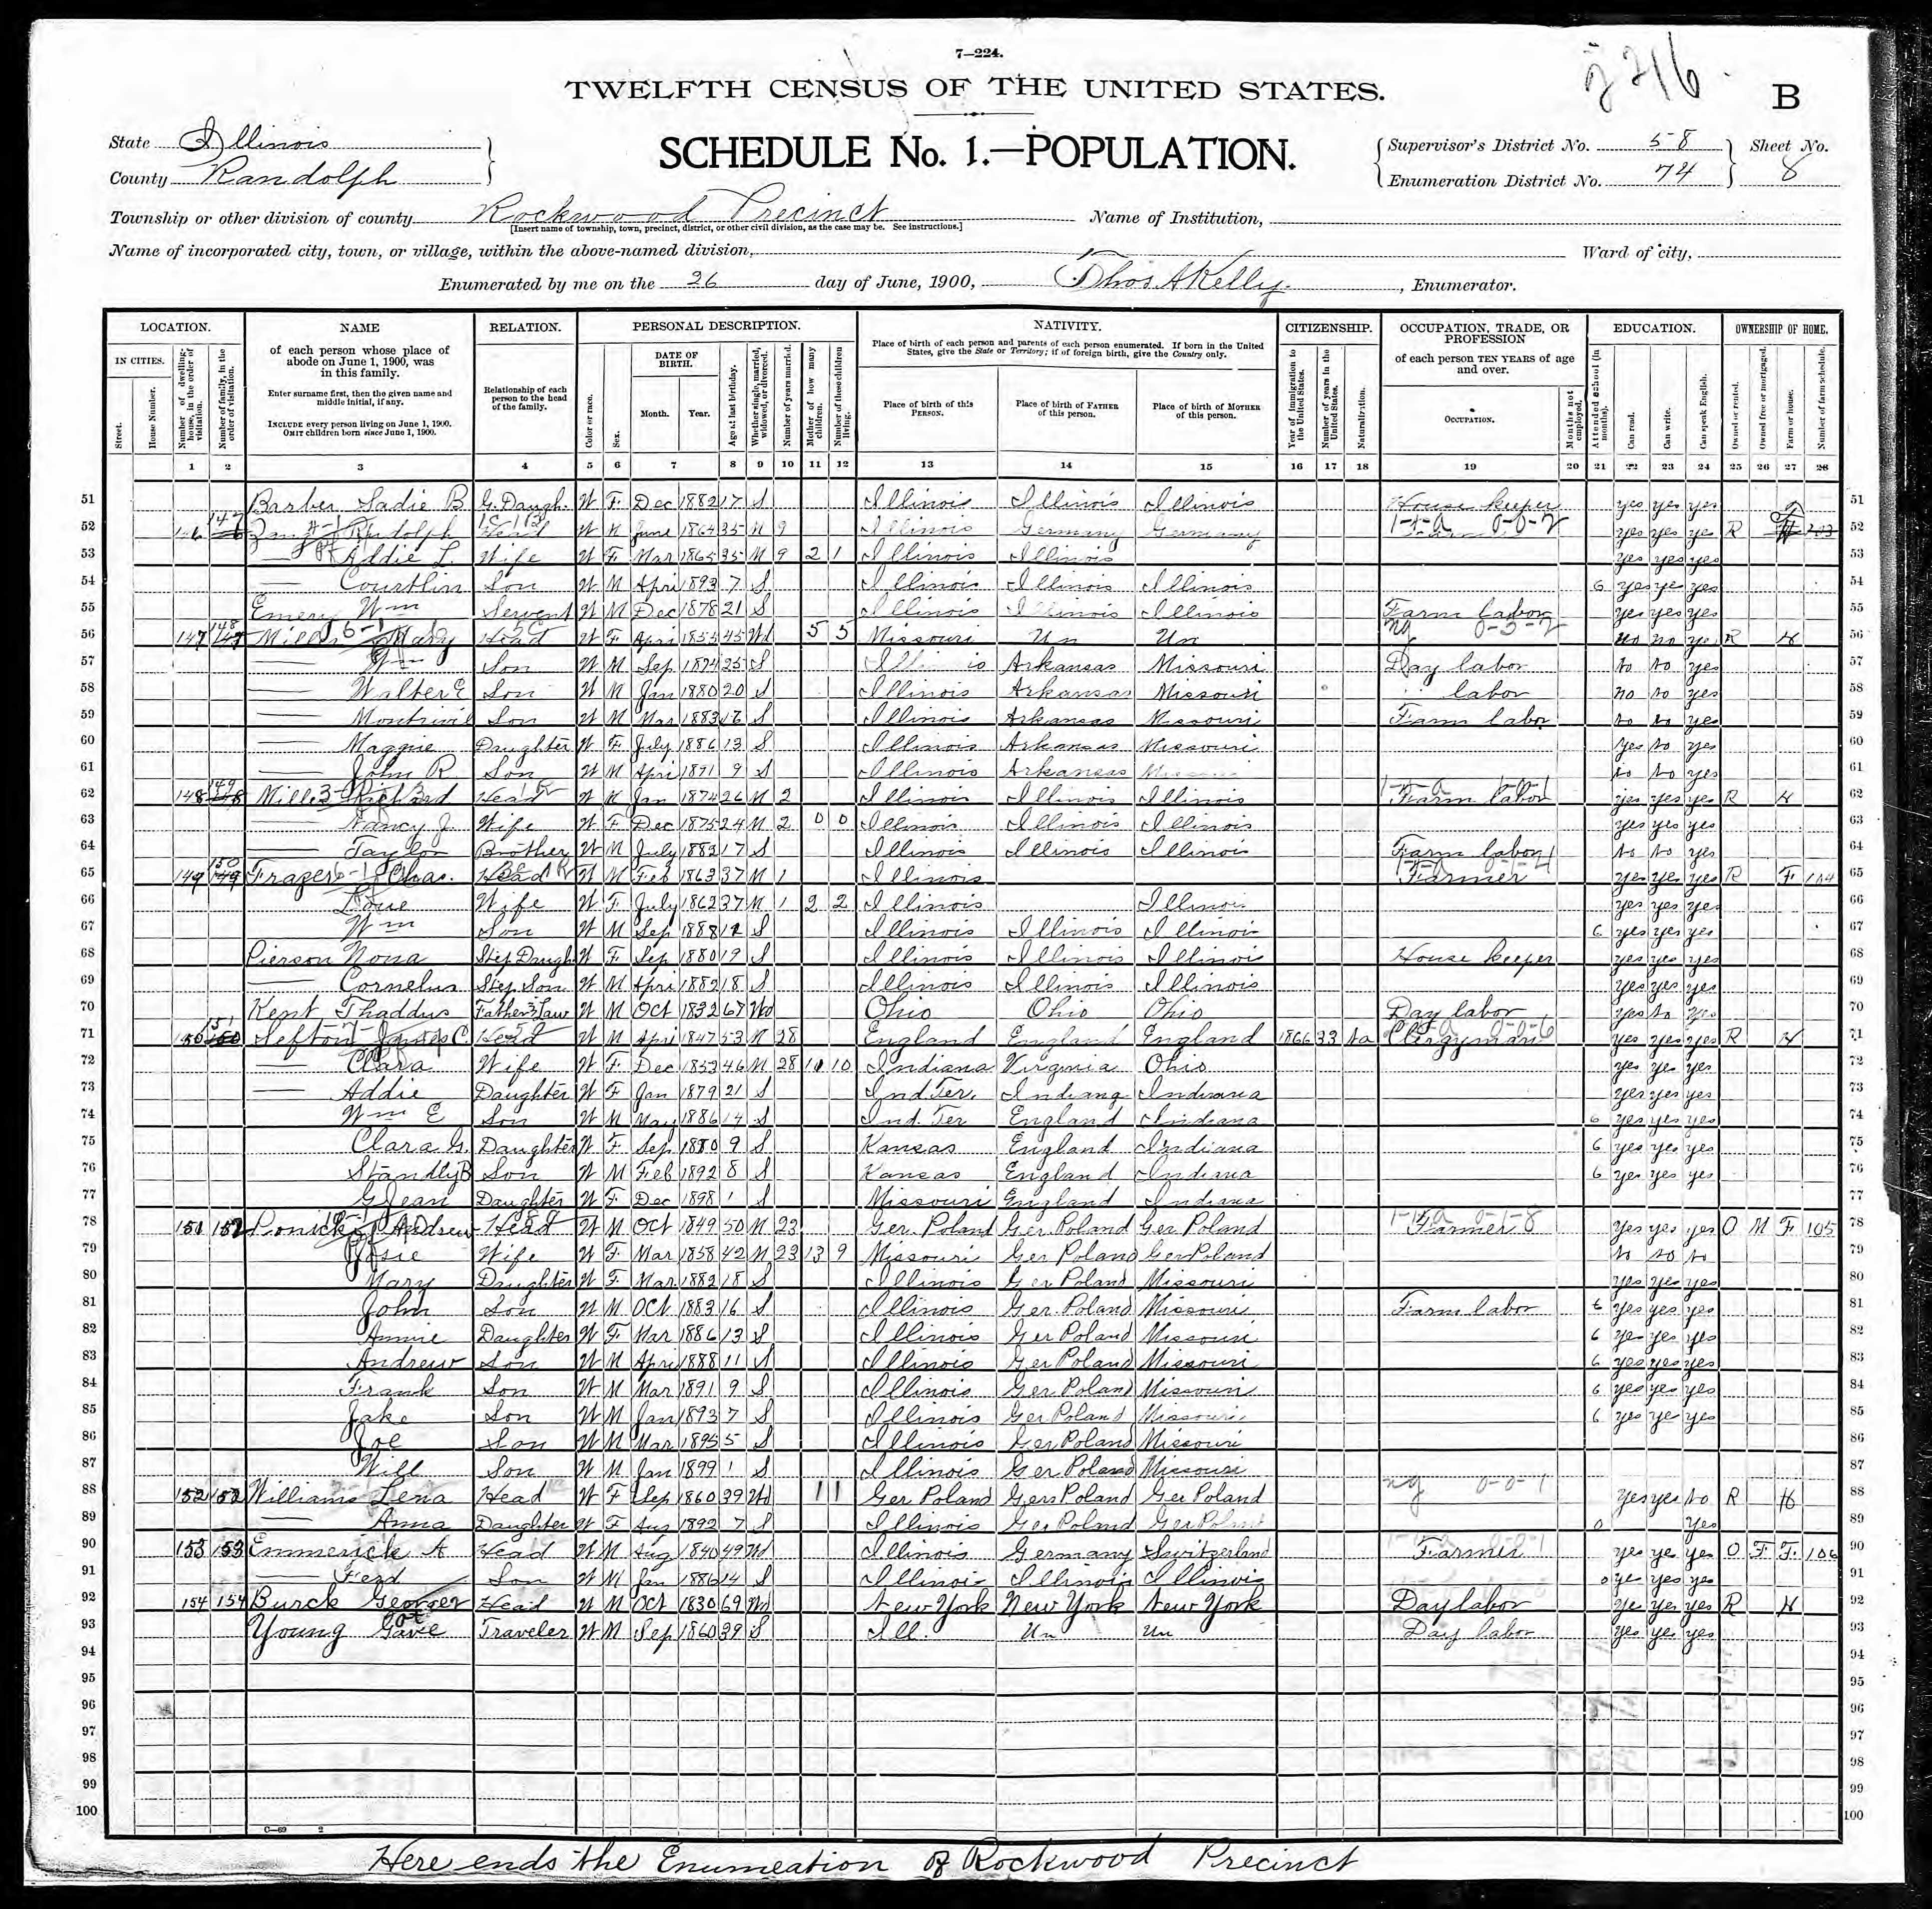 7—224.
2216
TWELFTH CENSUS OF THE UNITED STATES.
B
SCHEDULE No. 1.—POPULATION.
State Illinois
County Randolph
Supervisor's District No. 58
Enumeration District No. 74
Sheet No. 8
Township or other division of county Rockwood Precinct
[Insert name of township, town, precinct, district, or other civil division, as the case may be. See instructions.]
Name of Institution,
Name of incorporated city, town, or village, within the above-named division,
Ward of city,
Enumerated by me on the 26 day of June, 1900, Thos A Kelly, Enumerator.
LOCATION. NAME RELATION. PERSONAL DESCRIPTION. NATIVITY. CITIZENSHIP. OCCUPATION, TRADE, OR PROFESSION EDUCATION. OWNERSHIP OF HOME.
IN CITIES. Street. House Number. Number of dwelling-house, in the order of visitation. Number of family, in the order of visitation.
of each person whose place of abode on June 1, 1900, was in this family.
Enter surname first, then the given name and middle initial, if any.
INCLUDE every person living on June 1, 1900. OMIT children born since June 1, 1900.
Relationship of each person to the head of the family.
Color or race. Sex. DATE OF BIRTH. Month. Year. Age at last birthday. Whether single, married, widowed, or divorced. Number of years married. Mother of how many children. Number of these children living.
Place of birth of each person and parents of each person enumerated. If born in the United States, give the State or Territory; if of foreign birth, give the Country only.
Place of birth of this PERSON. Place of birth of FATHER of this person. Place of birth of MOTHER of this person.
Year of immigration to the United States. Number of years in the United States. Naturalization.
of each person TEN YEARS of age and over.
OCCUPATION. Months not employed.
Attended school (in months). Can read. Can write. Can speak English.
Owned or rented. Owned free or mortgaged. Farm or house. Number of farm schedule.
1 2 3 4 5 6 7 8 9 10 11 12 13 14 15 16 17 18 19 20 21 22 23 24 25 26 27 28
51 Barber Sadie B G. Daugh. W F Dec 1882 17 S Illinois Illinois Illinois House keeper yes yes yes 51
52 146 147 Rudolph Head W M June 1864 35 M 9 Illinois Germany Germany yes yes yes R 52
53 Addie L. Wife W F Mar 1865 35 M 9 2 1 Illinois Illinois yes yes yes 53
54 Courtlin Son W M Apri 1893 7 S Illinois Illinois Illinois 6 yes yes yes 54
55 Emery Wm Servent W M Dec 1878 21 S Illinois Illinois Illinois Farm labor yes yes yes 55
56 147 148 Mary Head W F Apri 1855 45 Wd 5 5 Missouri Un Un no no ye R H 56
57 Wm Son W M Sep 1874 25 S Illinois Arkansas Missouri Day labor no no yes 57
58 Walter E Son W M Jan 1880 20 S Illinois Arkansas Missouri labor no no yes 58
59 Son W M Mar 1883 S Illinois Arkansas Missouri Farm labor no no yes 59
60 Maggie Daughter W F July 1886 13 S Illinois Arkansas Missouri yes no yes 60
61 John R Son W M Apri 1891 9 S Illinois Arkansas no no yes 61
62 148 149 Richard Head W M Jan 1874 26 M 2 Illinois Illinois Illinois Farm labor yes yes yes R H 62
63 Nancy J. Wife W F Dec 1875 24 M 2 0 0 Illinois Illinois Illinois yes yes yes 63
64 Taylor Brother W M July 1882 17 S Illinois Illinois Illinois Farm labor no no yes 64
65 149 150 Frazer Chas. Head W M Feb 1863 37 M 1 Illinois Farmer yes yes yes R F 104 65
66 Wife W F July 1862 37 M 1 2 2 Illinois Illinoi yes yes yes 66
67 Wm Son W M Sep 1888 S Illinois Illinois Illinoi 6 yes yes yes 67
68 Pierson Nona Step Daugh W F Sep 1880 19 S Illinois Illinois Illinoi House keeper yes yes yes 68
69 Cornelius Step Son W M Apri 1882 18 S Illinois Illinois Illinois yes yes yes 69
70 Kent Thaddus Father in Law W M Oct 1832 67 Wd Ohio Ohio Ohio Day labor yes no yes 70
71 150 151 Sefton James C Head W M Apri 1847 53 M 28 England England England 1866 33 Na Clergyman yes yes yes R H 71
72 Clara Wife W F Dec 1853 46 M 28 10 10 Indiana Virginia Ohio yes yes yes 72
73 Addie Daughter W F Jan 1879 21 S Ind. Ter. Indiana Indiana yes yes yes 73
74 Wm E Son W M May 1886 14 S Ind. Ter England Indiana 6 yes yes yes 74
75 Clara G. Daughter W F Sep 9 S Kansas England Indiana 6 yes yes yes 75
76 Standly B Son W M Feb 1892 8 S Kansas England Indiana 6 yes yes yes 76
77 G Jean Daughter W F Dec 1898 1 S Missouri England Indiana 77
78 151 152 Andrew Head W M Oct 1849 50 M 23 Ger. Poland Ger Poland Ger Poland Farmer yes yes yes O M F 105 78
79 Josie Wife W F Mar 1858 42 M 23 13 9 Missouri Ger Poland Ger Poland no no no 79
80 Mary Daughter W F Mar. 1882 18 S Illinois Ger Poland Missouri yes yes yes 80
81 John Son W M Oct 1883 16 S Illinois Ger Poland Missouri Farm labor 6 yes yes yes 81
82 Annie Daughter W F Mar 1886 13 S Illinois Ger Poland Missouri 6 yes yes yes 82
83 Andrew Son W M Apri 1888 11 S Illinois Ger Poland Missouri 6 yes yes yes 83
84 Frank Son W M Mar 1891 9 S Illinois Ger Poland Missouri 6 yes yes yes 84
85 Jake Son W M Jan 1893 7 S Illinois Ger Poland Missouri 6 yes ye yes 85
86 Joe Son W M Mar 1895 5 S Illinois Ger Poland Missouri 86
87 Will Son W M Jan 1899 1 S Illinois Ger Poland Missouri 87
88 152 152 Williams Lena Head W F Sep 1860 39 Wd 1 1 Ger Poland Ger Poland Ger Poland ng 0-0-1 yes yes no R H 88
89 Anna Daughter W F Aug 1892 7 S Illinois Ger Poland Ger Poland 0 yes 89
90 153 153 Emmerick A Head W M Aug 1840 49 Wd Illinois Germany Switzerland Farmer yes ye yes O F F 106 90
91 Ferd Son W M Jan 1886 14 S Illinois Illinois Illinois 0 ye yes yes 91
92 154 154 Burck George Head W M Oct 1830 69 Wd New York New York New York Day labor ye yes yes R H 92
93 Young Traveler W M Sep 1860 39 S Ill. Un Un Day labor yes yes yes 93
94 94
95 95
96 96
97 97
98 98
99 99
100 100
C—69 2
Here ends the Enumeation of Rockwood Precinct